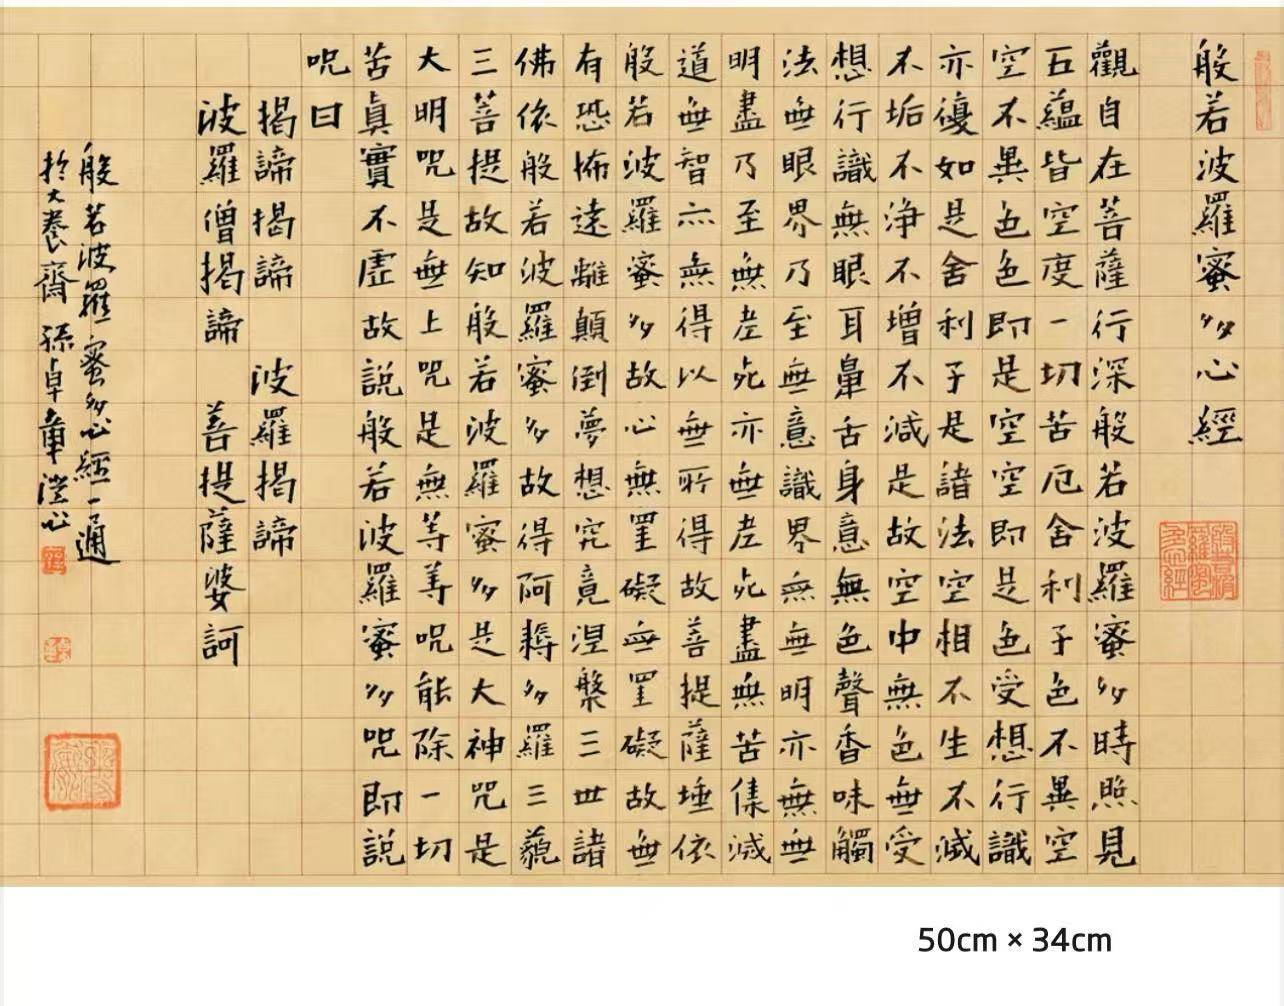 般若波羅蜜多心經
觀自在菩薩行深般若波羅蜜多時照見
五蘊皆空度一切苦厄舍利子色不異空
空不異色色即是空空即是色受想行識
亦復如是舍利子是諸法空相不生不滅
不垢不净不增不減是故空中無色無受
想行識無眼耳鼻舌身意無色聲香味觸
法無眼界乃至無意識界無無明亦無無
明盡乃至無老死亦無老死盡無苦集滅
道無智亦無得以無所得故菩提薩埵依
般若波羅蜜多故心無罣礙無罣礙故無
有恐怖遠離顛倒夢想究竟涅槃三世諸
佛依般若波羅蜜多故得阿耨多羅三藐
三菩提故知般若波羅蜜多是大神咒是
大明咒是無上咒是無等等咒能除一切
苦真實不虛故說般若波羅蜜多咒即說
咒曰
揭諦揭諦 波羅揭諦
波羅僧揭諦 菩提薩婆訶
般若波羅蜜多心經一通
於大養齋 孫卓章澄心
50cm × 34cm